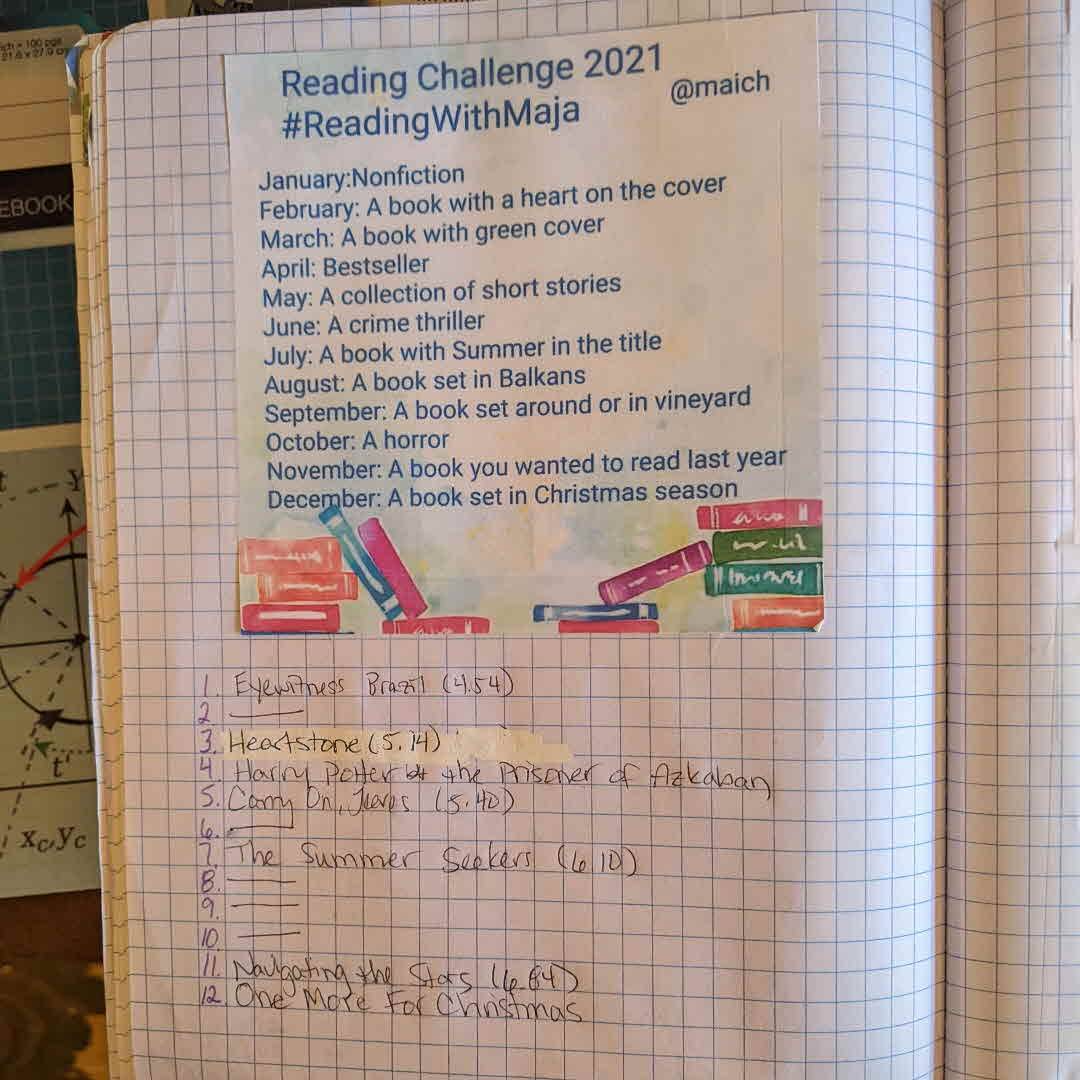 ch × 100 pgs
21.6 x 27.9 cm
EBOOK
t
y
t'
xc,yc
Reading Challenge 2021
@maich
#ReadingWithMaja
January:Nonfiction
February: A book with a heart on the cover
March: A book with green cover
April: Bestseller
May: A collection of short stories
June: A crime thriller
July: A book with Summer in the title
August: A book set in Balkans
September: A book set around or in vineyard
October: A horror
November: A book you wanted to read last year
December: A book set in Christmas season
1. Eyewitness Brazil (4.54)
2.
3. Heartstone (5.14)
4. Harry Potter & the Prisoner of Azkaban
5. Carry On, Jeeves (5.40)
6.
7. The Summer Seekers (6.10)
8.
9.
10.
11. Navigating the Stars (6.84)
12. One More For Christmas